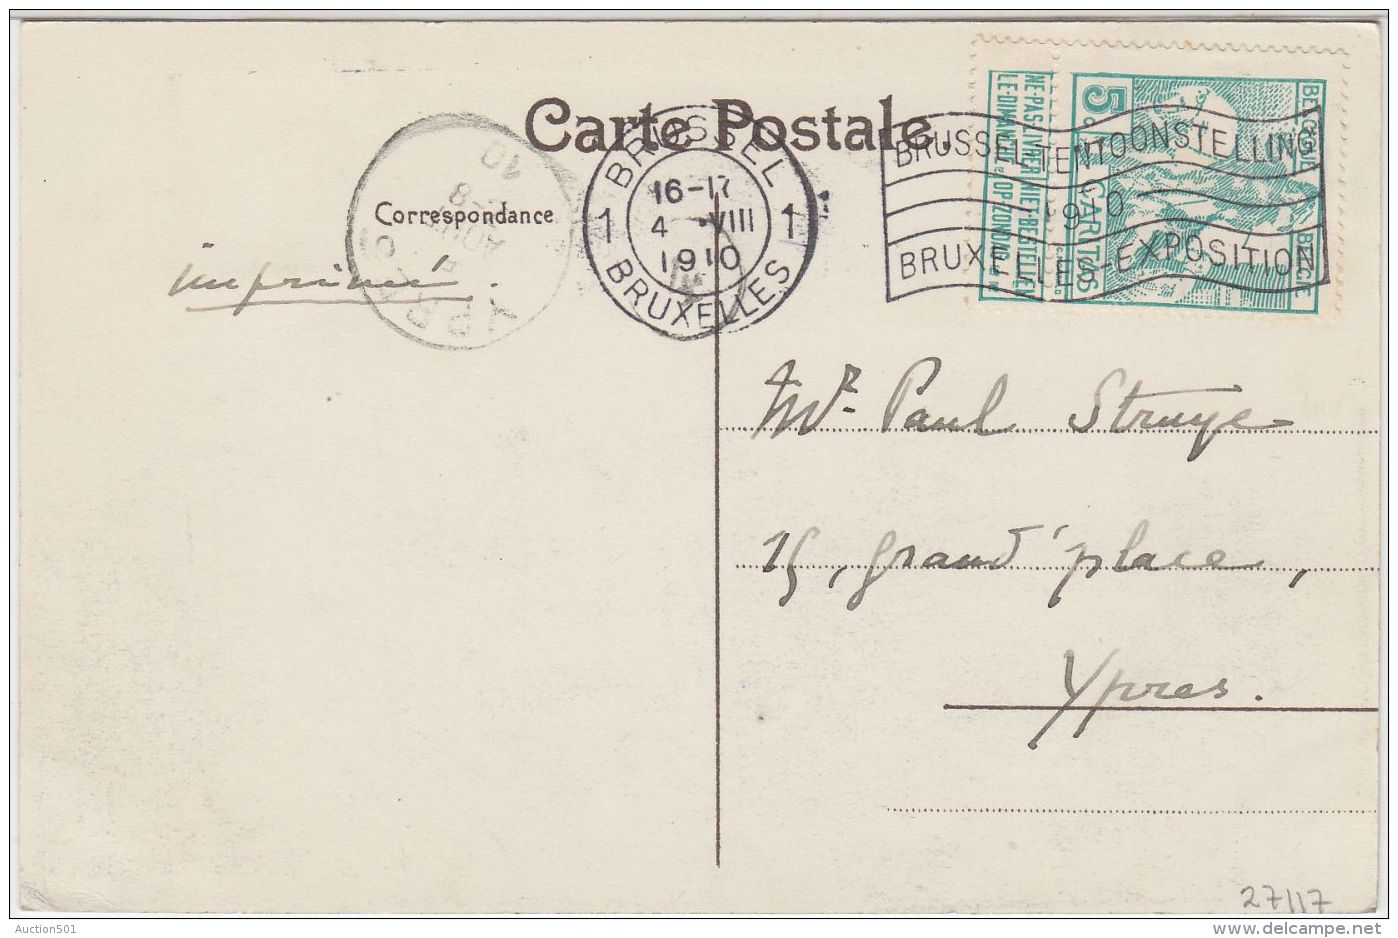 Carte Postale.
Correspondance
imprimé.
BRUSSEL
16-17
1 4 VIII 1
1910
BRUXELLES
BRUSSEL-TENTOONSTELLING
1910
BRUXELLES-EXPOSITION
NE-PAS-LIVRER NIE-BESTELLEN
LE-DIMANCHE OP-ZONDAG
5c CARITAS
BELGIQUE
BELGIE
YPRES
8
AOUT
10
Mr. Paul Struye
15, grand'place,
Ypres.
27/17
Auction501
delcampe.net